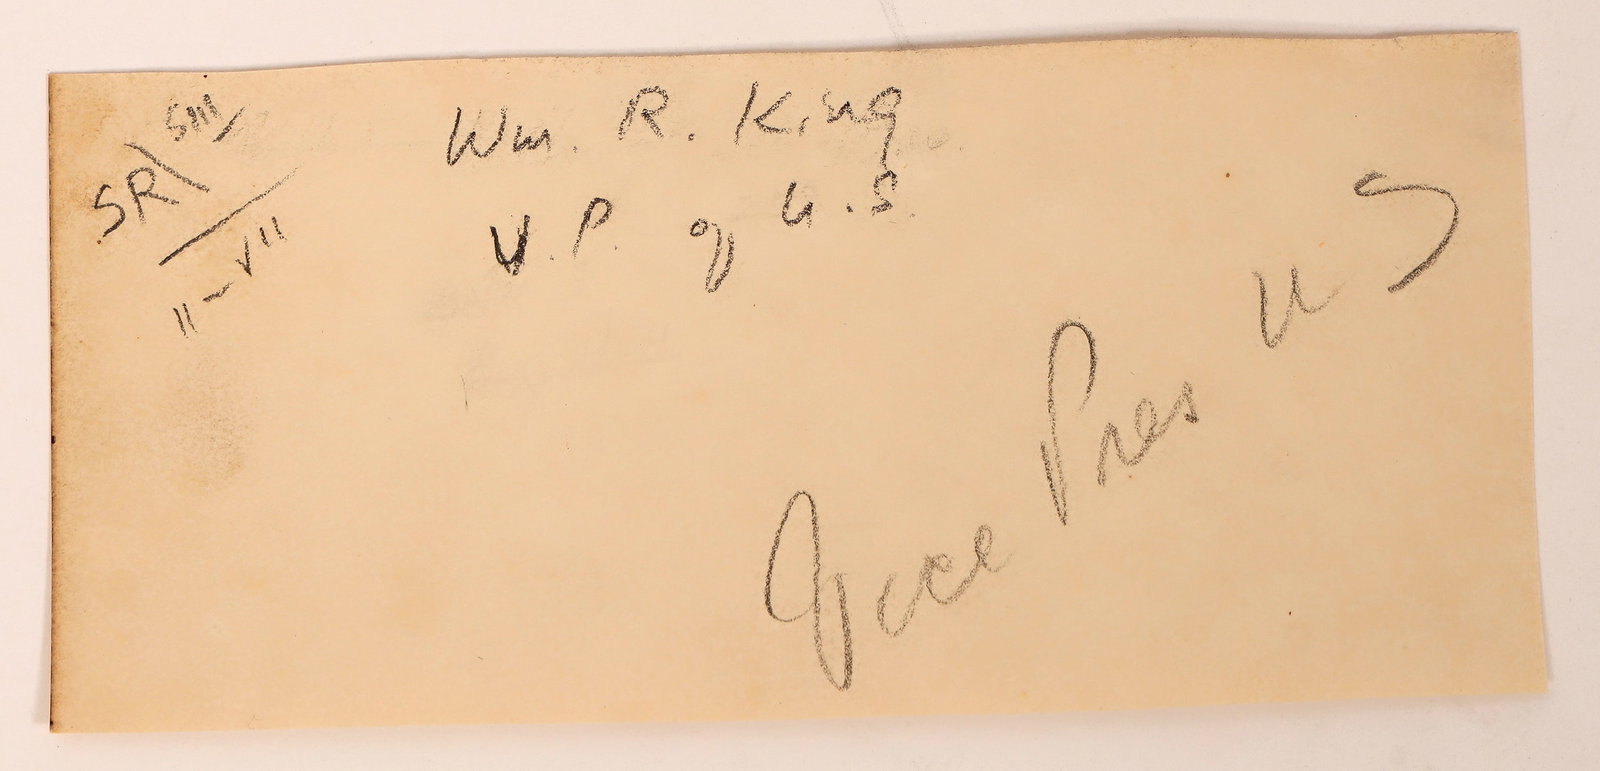 SR\SIII
II-VII
Wm. R. King
V.P. of U.S.
Vice Pres US